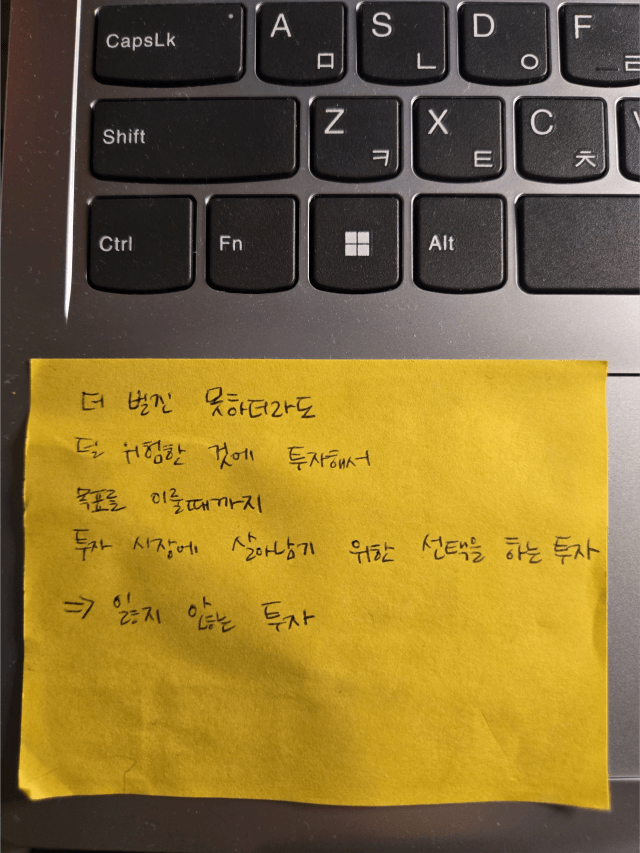 CapsLk A ㅁ S ㄴ D ㅇ F ㄹ
Shift Z ㅋ X ㅌ C ㅊ
Ctrl Fn Alt
더 벌진 못하더라도
덜 위험한 것에 투자해서
목표를 이룰때까지
투자 시장에 살아남기 위한 선택을 하는 투자
⇒ 잃지 않는 투자